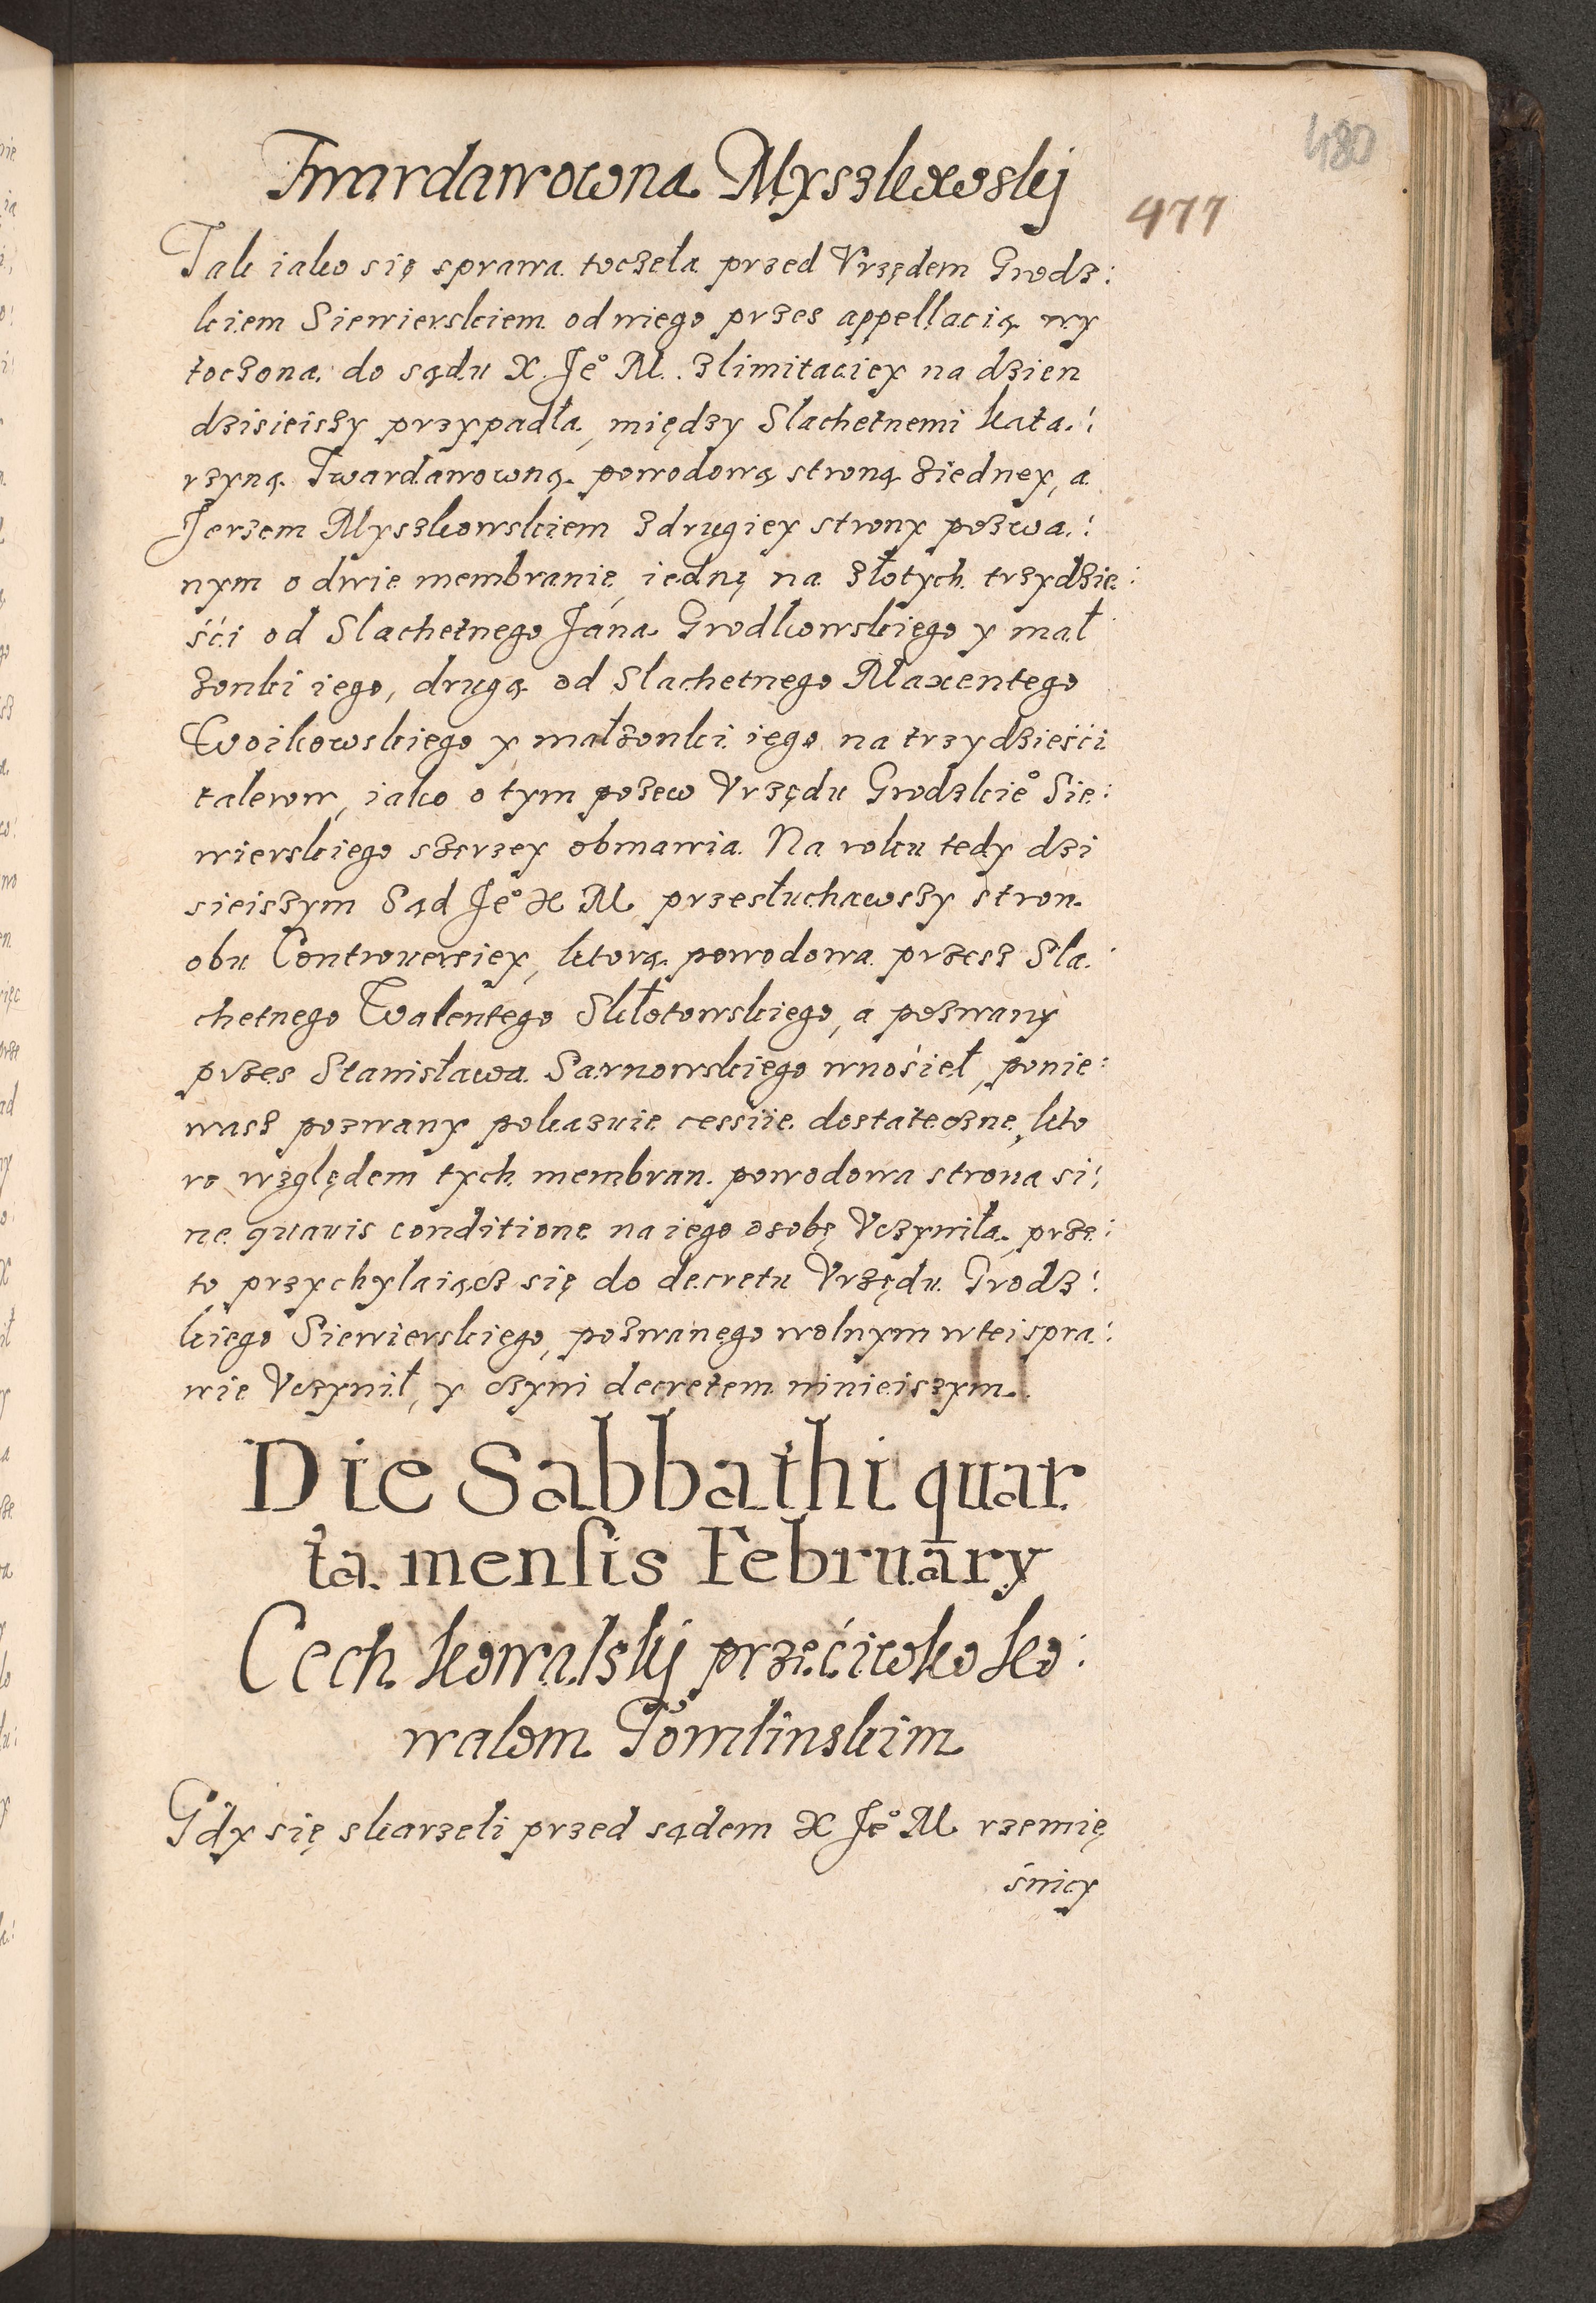 480
Twardawowna Myszkowskj
477
Tak iako się sprawa toczeła przed Vrzędem Grodz:
kiem Siewierskiem od niego przes appellacią wy
toczona do sądu X. Je° M. z limitaciey na dzien
dzisieiszy przypadła, między Slachetnemi kata:
rzyną Twardawowną powodową stroną ziedney, a
Jerzem Myszkowskiem z drugiey strony pozwa:
nym o dwie membranie, iednę na złotych trzydzie:
ści od Slachetnego Jana Grodkowskiego y mał
żonki iego, drugą od Slachetnego Maxentego
Woikowskiego y małżonki iego na trzydzieści
talerow, iako o tym pozew Vrzędu Grodzkie° Sie:
wierskiego szerzey obmawia. Na roku tedy dzi
sieiszym Sąd Je° X M przesłuchawszy stron
obu Controuersiey, ktorą powodowa przesz Sla:
chetnego Walentego Skłotowskiego, a pozwany
przes Stanisława Sarnowskiego wnosieł, ponie:
wasz pozwany pokazuie cessiie dostateczne, kto
ro względem tych membran powodowa strona si:
ne quauis conditione na iego osobę Vczyniła, prze:
to przychylaiącz się do decretu Vrzędu Grodz:
kiego Siewierskiego, pozwanego wolnym w tei spra:
wie Vczynił, y czyni decretem ninieiszym.
Die Sabbathi quar
ta mensis February
Cech kowalskj przećiwko ko:
walom Tomlinskim
Gdy się skarzeli przed sądem X Je° M rzemię
śnicy